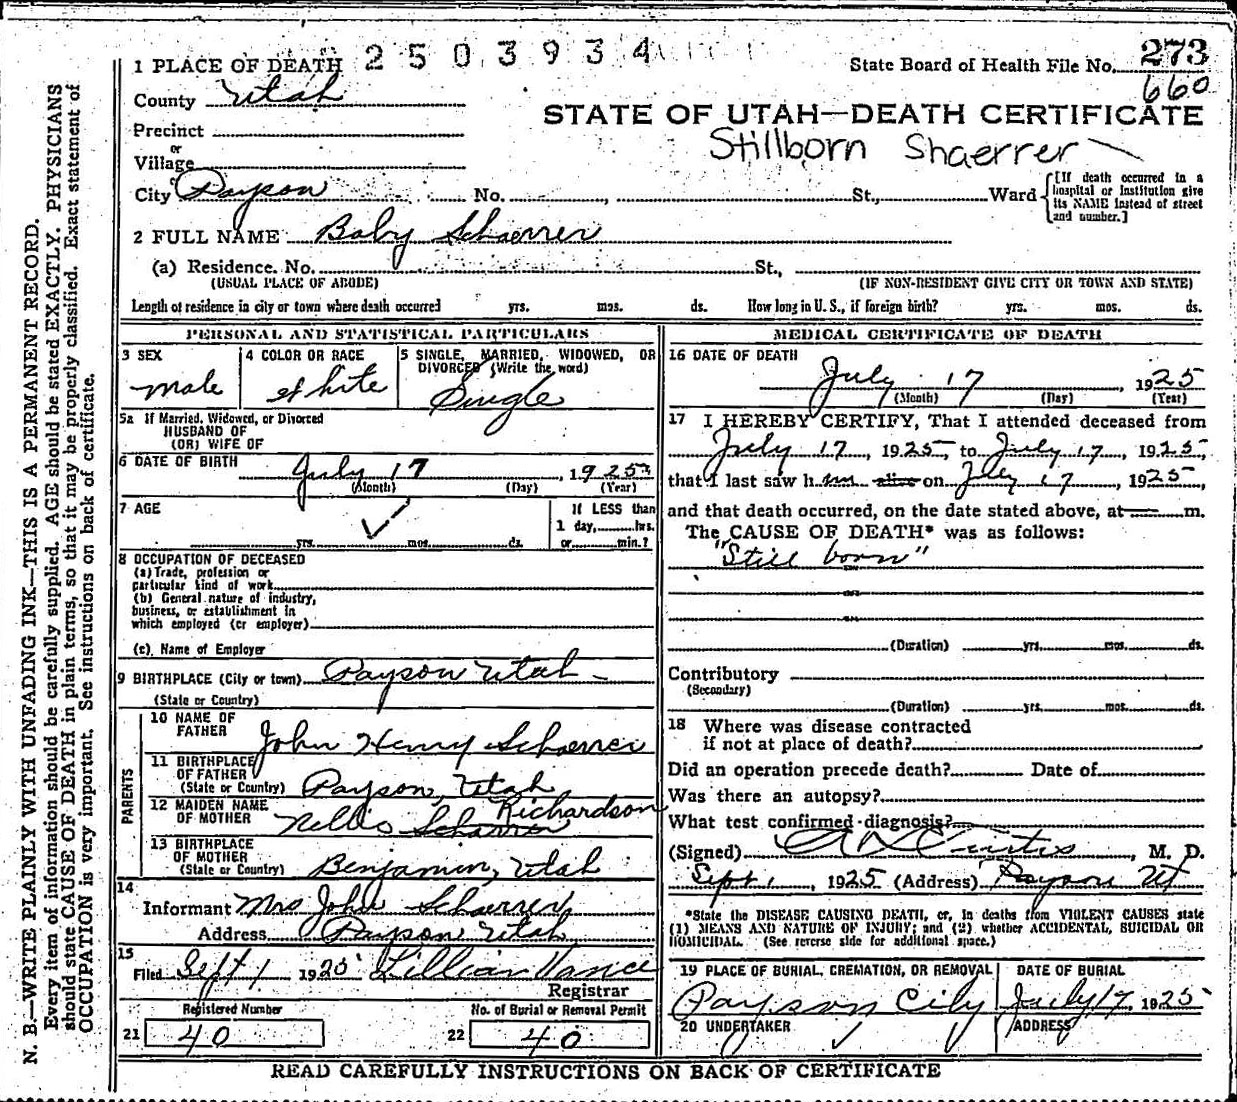 2503934
273
1 PLACE OF DEATH
State Board of Health File No.
660
County Utah
STATE OF UTAH—DEATH CERTIFICATE
Precinct
or
Stillborn Shaerrer
Village
City Payson No. , St., Ward
[If death occurred in a hospital or institution give its NAME instead of street and number.]
2 FULL NAME Baby Schaerrer
(a) Residence. No. St.,
(USUAL PLACE OF ABODE) (IF NON-RESIDENT GIVE CITY OR TOWN AND STATE)
Length of residence in city or town where death occurred yrs. mos. ds. How long in U. S., if foreign birth? yrs. mos. ds.
PERSONAL AND STATISTICAL PARTICULARS
3 SEX 4 COLOR OR RACE 5 SINGLE, MARRIED, WIDOWED, OR
DIVORCED (Write the word)
Male White Single
5a If Married, Widowed, or Divorced
HUSBAND OF
(OR) WIFE OF
6 DATE OF BIRTH July 17, 1925
(Month) (Day) (Year)
7 AGE If LESS than
1 day, hrs.
yrs. mos. ds. or min.?
8 OCCUPATION OF DECEASED
(a) Trade, profession or
particular kind of work
(b) General nature of industry,
business, or establishment in
which employed (or employer)
(c) Name of Employer
9 BIRTHPLACE (City or town) Payson Utah
(State or Country)
PARENTS
10 NAME OF
FATHER John Henry Schaerrer
11 BIRTHPLACE
OF FATHER
(State or Country) Payson, Utah
12 MAIDEN NAME Richardson
OF MOTHER Schaerrer
13 BIRTHPLACE
OF MOTHER
(State or Country) Benjamin, Utah
14
Informant Mrs John Schaerrer
Address Payson Utah
15
Filed Sept 1 1925 Lillian Vance
Registrar
Registered Number No. of Burial or Removal Permit
21 40 22 40
MEDICAL CERTIFICATE OF DEATH
16 DATE OF DEATH
July 17, 1925
(Month) (Day) (Year)
17 I HEREBY CERTIFY, That I attended deceased from
July 17, 1925, to July 17, 1925,
that I last saw him alive on July 17, 1925,
and that death occurred, on the date stated above, at m.
The CAUSE OF DEATH* was as follows:
"Still born"
(Duration) yrs. mos. ds.
Contributory
(Secondary)
(Duration) yrs. mos. ds.
18 Where was disease contracted
if not at place of death?
Did an operation precede death? Date of
Was there an autopsy?
What test confirmed diagnosis?
(Signed) Curtis, M. D.
Sept 1, 1925 (Address) Payson Ut
*State the DISEASE CAUSING DEATH, or, in deaths from VIOLENT CAUSES state
(1) MEANS AND NATURE OF INJURY; and (2) whether ACCIDENTAL, SUICIDAL OR
HOMICIDAL. (See reverse side for additional space.)
19 PLACE OF BURIAL, CREMATION, OR REMOVAL DATE OF BURIAL
Payson City July 17, 1925
20 UNDERTAKER ADDRESS
READ CAREFULLY INSTRUCTIONS ON BACK OF CERTIFICATE
N. B.—WRITE PLAINLY WITH UNFADING INK—THIS IS A PERMANENT RECORD.
Every item of information should be carefully supplied. AGE should be stated EXACTLY. PHYSICIANS
should state CAUSE OF DEATH in plain terms, so that it may be properly classified. Exact statement of
OCCUPATION is very important. See instructions on back of certificate.